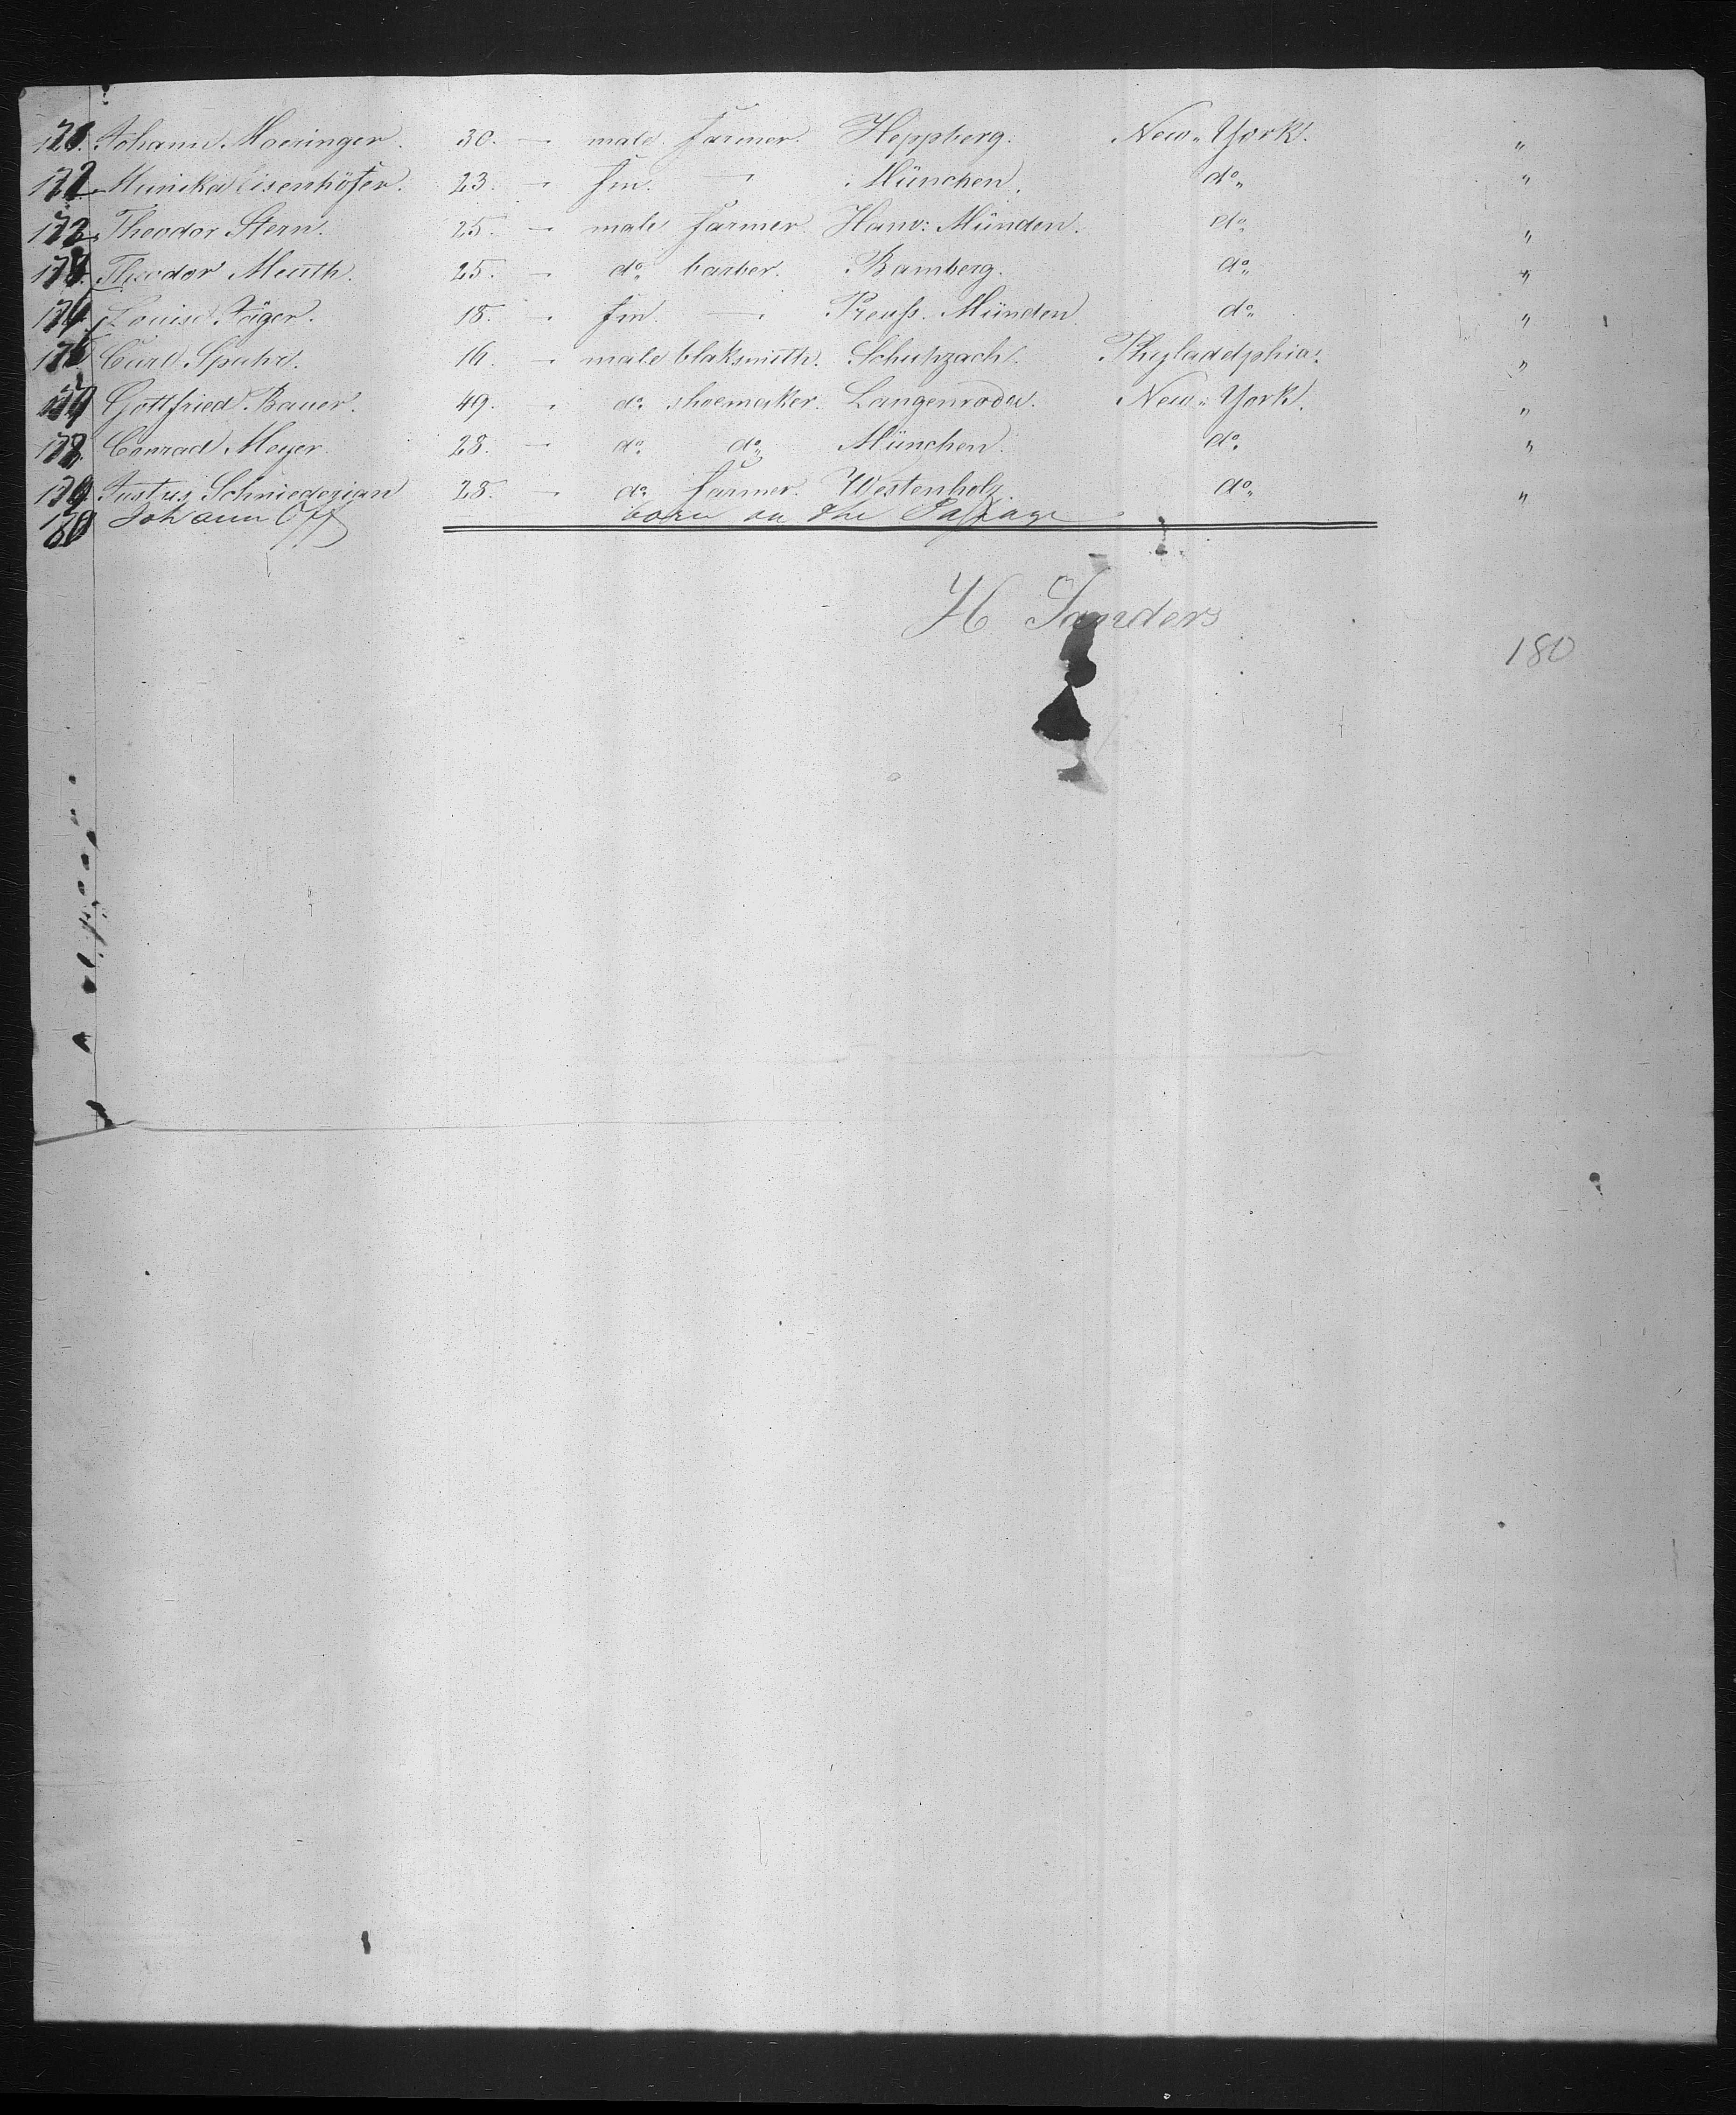 171. Johann Moeringer. 30. — male farmer. Heppberg. New-York. "
172 Munika Eisenhöfer. 23. — fm. — München. do "
173 Theodor Stern. 25. — male farmer Hanv: Münden. do "
174 Theodor Meuth. 25. — do barber. Bamberg. do "
175 Louise Jäger. 18. — fm. — Preuss. Münden do "
176 Carl Spuhr. 16. — male blaksmith. Phyladelphia. "
177 Gottfried Bauer. 49. — do shoemaker. Langenroda. New-York. "
178 Conrad Meyer. 28. — do do München. do "
179 Justus 28. — do farmer. Westenholz. do "
180 Johann Off born on the Passage
H Sanders
180